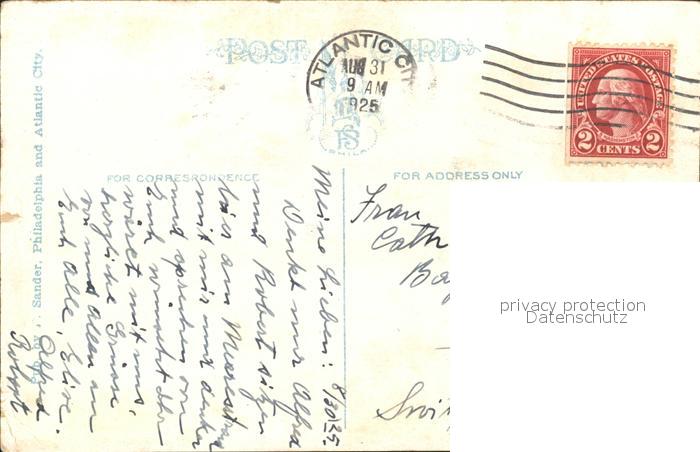 POST CARD
ATLANTIC CITY
AUG 31
9 AM
1925
UNITED STATES POSTAGE
WASHINGTON
2 CENTS 2
PHILA
FOR CORRESPONDENCE
FOR ADDRESS ONLY
Sander, Philadelphia and Atlantic City.
8/30/25.
Meine Lieben:
Denkt nur Alfred
und Robert sitzen
hier am Meeresstrand
mit mir und denken
und sprechen von
Euch wünscht Ihr
wäret mit uns.
herzliche Grüsse
von uns Allen an
Euch Alle, Elise.
Alfred.
Robert
Frau
Cath
Swi
privacy protection
Datenschutz